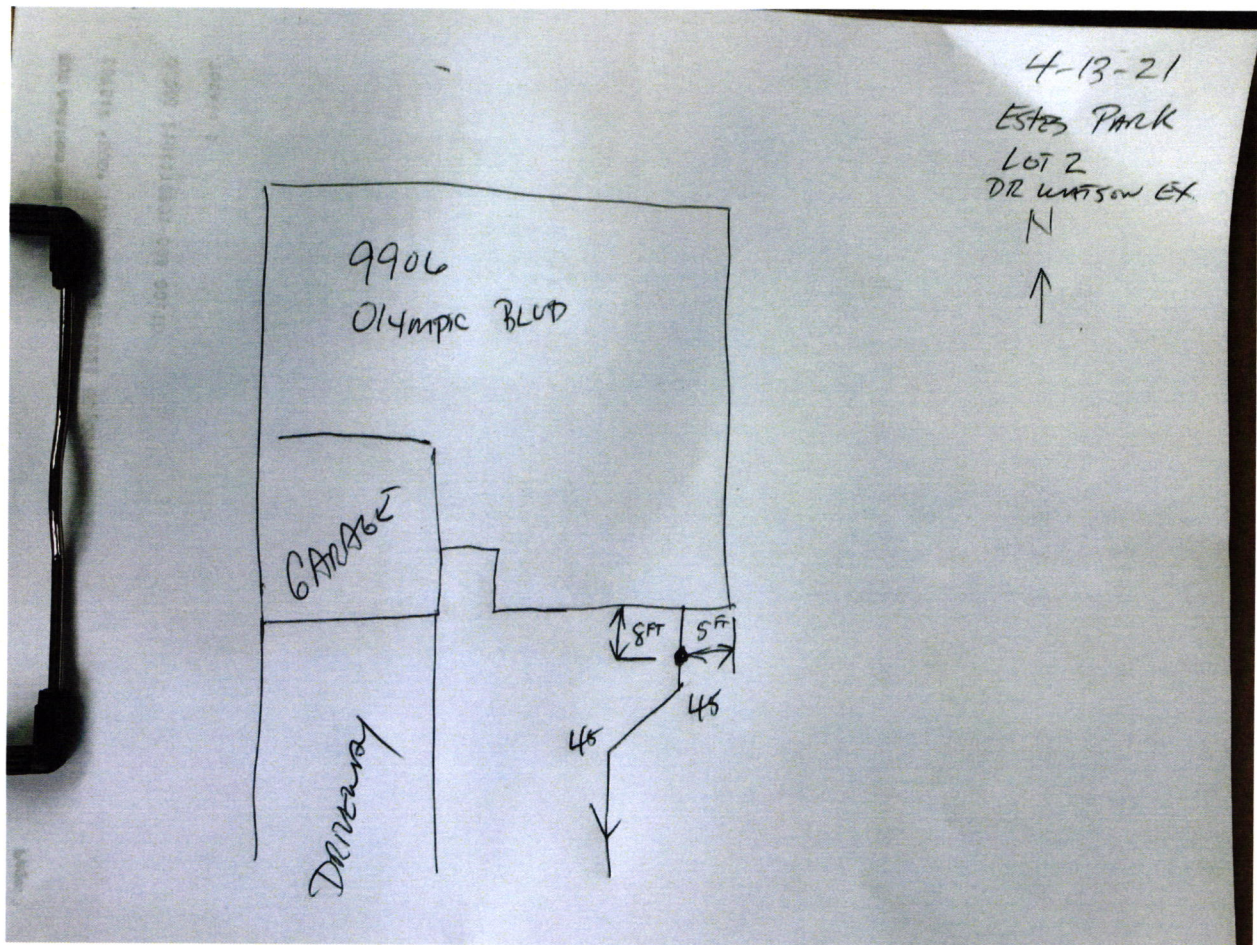 4-13-21
Estes PARK
LOT 2
DR WATSON EX
N
9906
Olympic BLVD
GARAGE
8FT
5FT
45
45
DRIVEWAY